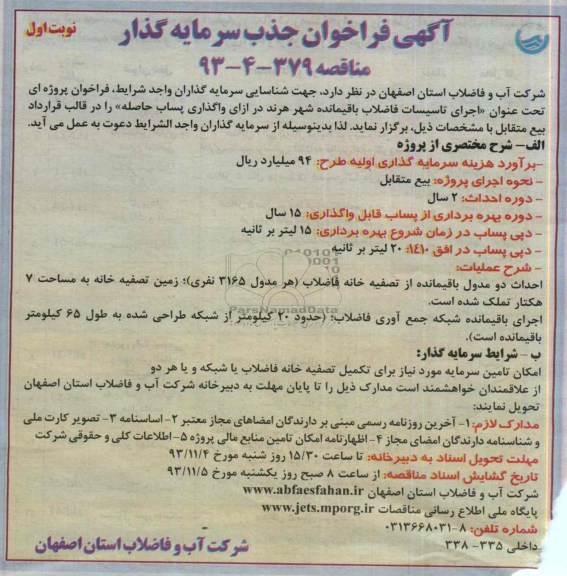 آگهی فراخوان جذب سرمایه گذار
نوبت اول
مناقصه ۳۷۹-۴-۹۳
شرکت آب و فاضلاب استان اصفهان در نظر دارد، جهت شناسایی سرمایه گذاران واجد شرایط، فراخوان پروژه ای
تحت عنوان «اجرای تاسیسات فاضلاب باقیمانده شهر هرند در ازای واگذاری پساب حاصله» را در قالب قرارداد
بیع متقابل با مشخصات ذیل، برگزار نماید. لذا بدینوسیله از سرمایه گذاران واجد الشرایط دعوت به عمل می آید.
الف- شرح مختصری از پروژه
-برآورد هزینه سرمایه گذاری اولیه طرح: ۹۴ میلیارد ریال
- نحوه اجرای پروژه: بیع متقابل
- دوره احداث: ۲ سال
- دوره بهره برداری از پساب قابل واگذاری: ۱۵ سال
- دبی پساب در زمان شروع بهره برداری: ۱۵ لیتر بر ثانیه
- دبی پساب در افق ۱۴۱۰: ۲۰ لیتر بر ثانیه
- شرح عملیات:
احداث دو مدول باقیمانده از تصفیه خانه فاضلاب (هر مدول ۳۱۶۵ نفری)؛ زمین تصفیه خانه به مساحت ۷
هکتار تملک شده است.
ParsNamadData
اجرای باقیمانده شبکه جمع آوری فاضلاب؛ (حدود ۲۰ کیلومتر از شبکه طراحی شده به طول ۶۵ کیلومتر
باقیمانده است).
ب - شرایط سرمایه گذار:
امکان تامین سرمایه مورد نیاز برای تکمیل تصفیه خانه فاضلاب یا شبکه و یا هر دو
از علاقمندان خواهشمند است مدارک ذیل را تا پایان مهلت به دبیرخانه شرکت آب و فاضلاب استان اصفهان
تحویل نمایند:
مدارک لازم: ۱- آخرین روزنامه رسمی مبنی بر دارندگان امضاهای مجاز معتبر ۲- اساسنامه ۳- تصویر کارت ملی
و شناسنامه دارندگان امضای مجاز ۴- اظهارنامه امکان تامین منابع مالی پروژه ۵- اطلاعات کلی و حقوقی شرکت
مهلت تحویل اسناد به دبیرخانه: تا ساعت ۱۵/۳۰ روز شنبه مورخ ۹۳/۱۱/۴
تاریخ گشایش اسناد مناقصه: از ساعت ۸ صبح روز یکشنبه مورخ ۹۳/۱۱/۵
شرکت آب و فاضلاب استان اصفهان www.abfaesfahan.ir
پایگاه ملی اطلاع رسانی مناقصات www.jets.mporg.ir
شماره تلفن: ۸-۰۳۱۳۶۶۸۰۳۱
داخلی ۳۳۵- ۳۳۸
شرکت آب و فاضلاب استان اصفهان